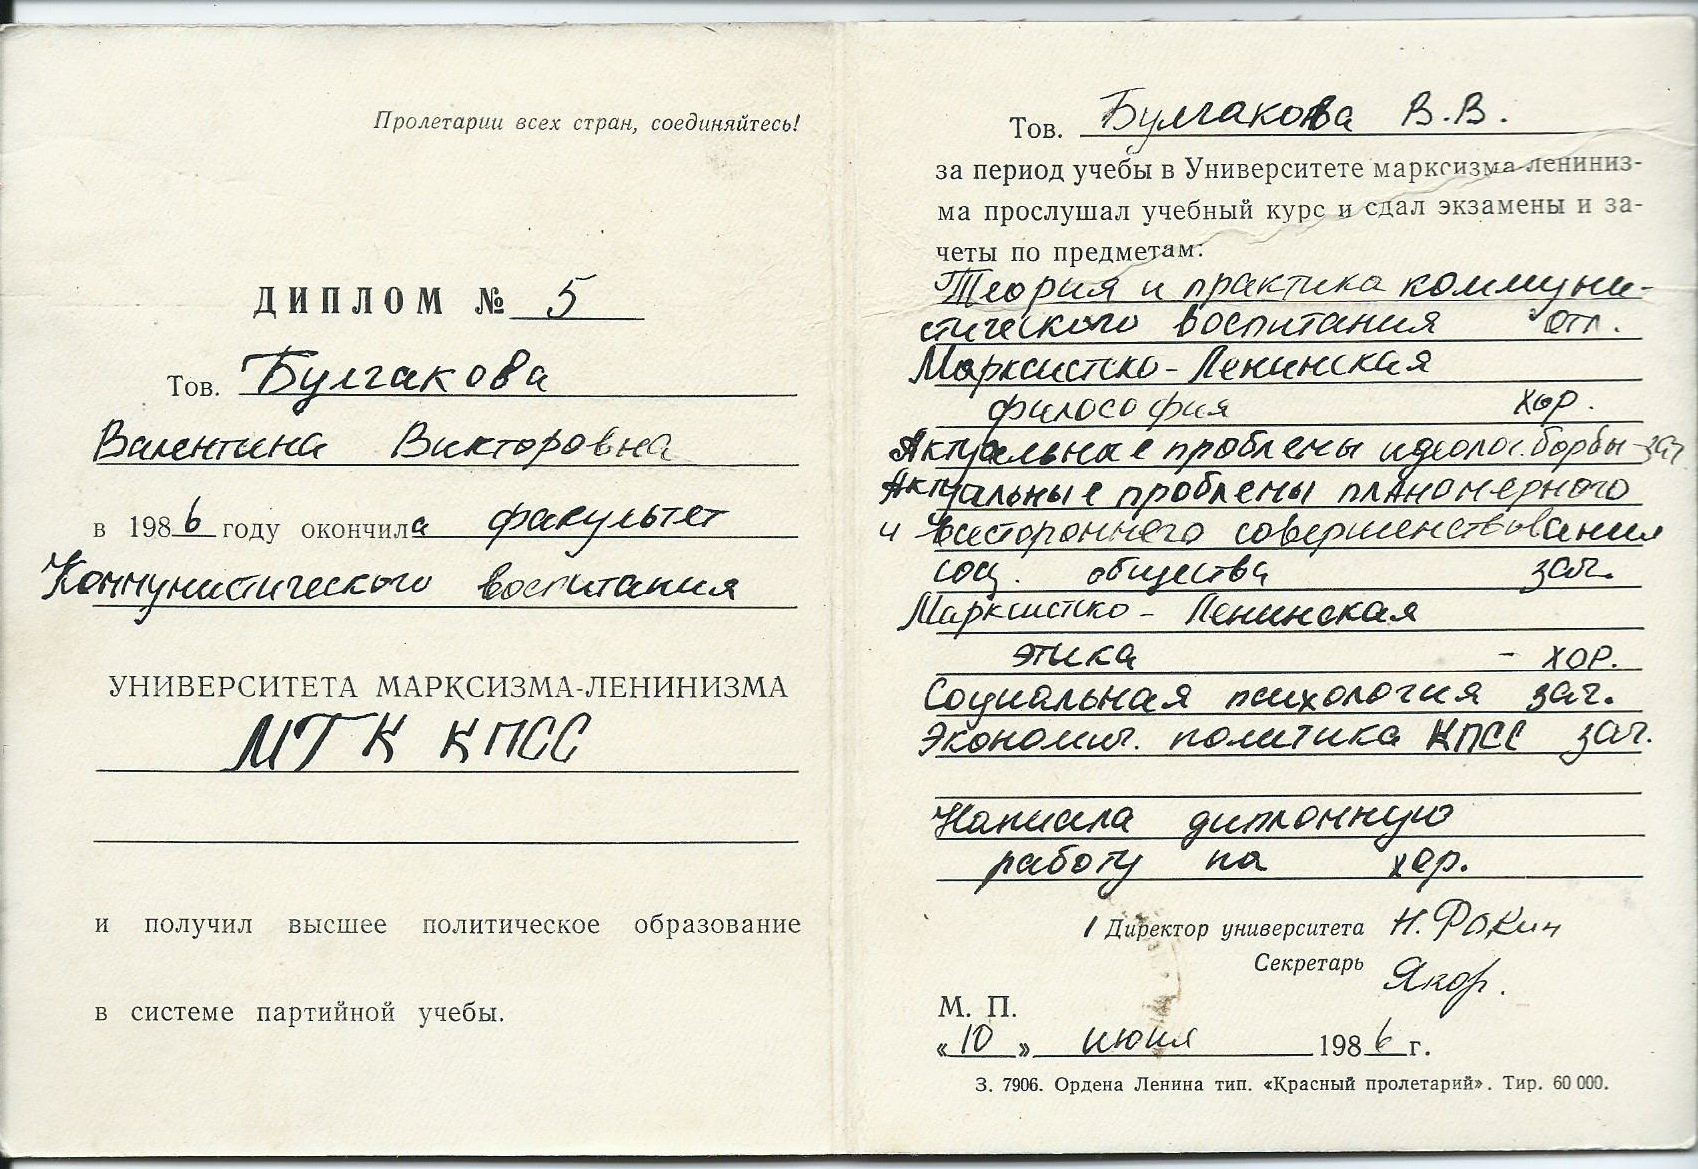 Пролетарии всех стран, соединяйтесь!
ДИПЛОМ № 5
Тов. Булгакова
Валентина Викторовна
в 1986 году окончила факультет
Коммунистического воспитания
УНИВЕРСИТЕТА МАРКСИЗМА-ЛЕНИНИЗМА
МГК КПСС
и получил высшее политическое образование
в системе партийной учебы.
Тов. Булгакова В.В.
за период учебы в Университете марксизма-лениниз-
ма прослушал учебный курс и сдал экзамены и за-
четы по предметам:
Теория и практика коммуни-
стического воспитания отл.
Марксистко-Ленинская
философия хор.
Актуальные проблемы идеолог. борбы-зач
Актуальные проблемы планомерного
и всестороннего совершенствования
соц. общества зач.
Марксистко-Ленинская
этика - хор.
Социальная психология зач.
Экономич. политика КПСС зач.
Написала дипломную
работу на хор.
Директор университета Н. Фокин
Секретарь Якор.
М. П.
«10» июня 1986 г.
З. 7906. Ордена Ленина тип. «Красный пролетарий». Тир. 60 000.